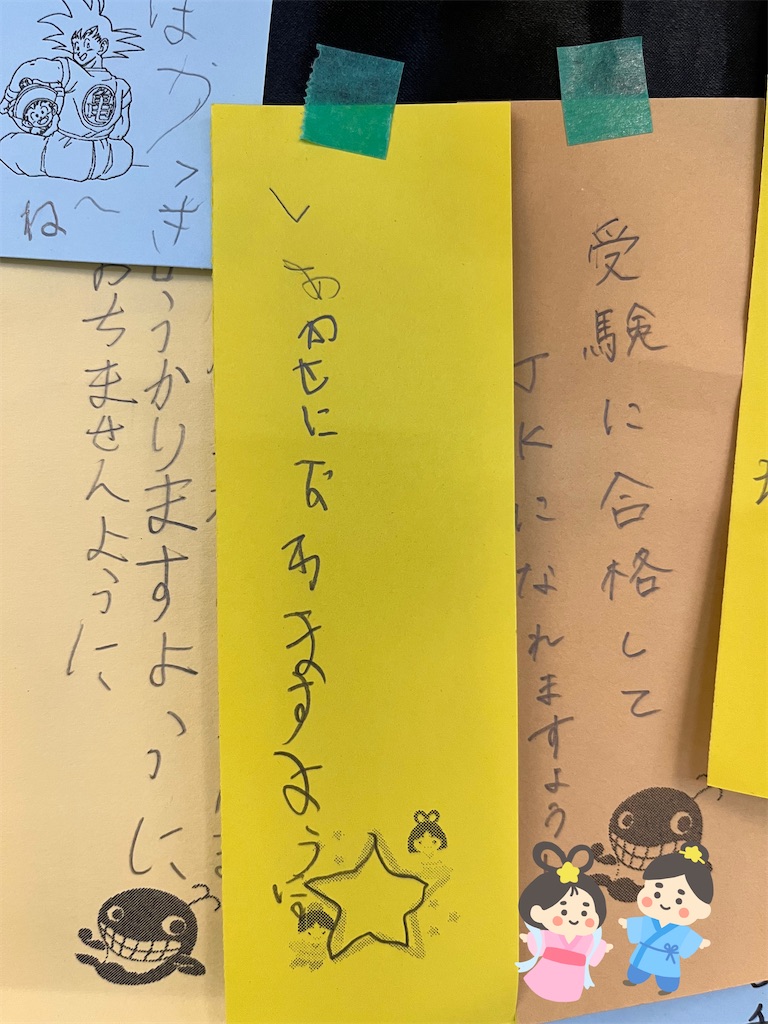 受験に合格して
JKになれますよう
しあわせになれますように
うかりますように
おちませんように
亀
ね